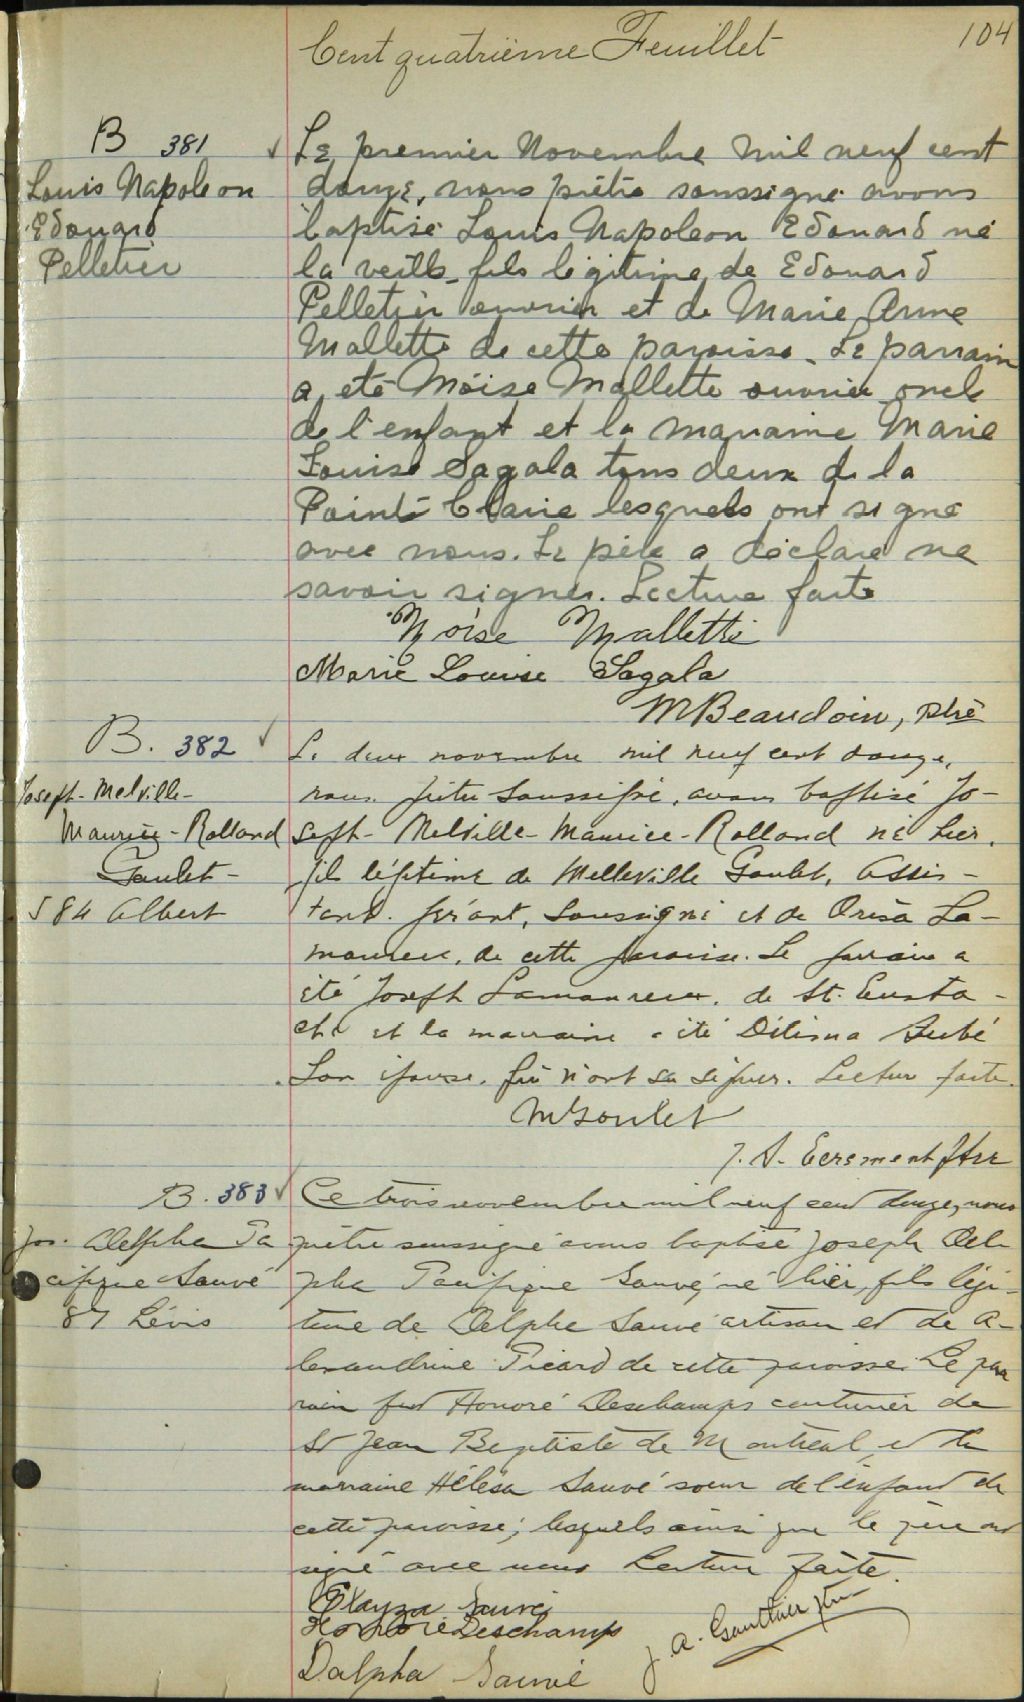 Cent quatrième Feuillet 104
B 381
Louis Napoleon
Edouard
Pelletier
Le premier Novembre mil neuf cent
douze, nous prêtre soussigné avons
baptisé Louis Napoleon Edouard né
la veille fils légitime de Edouard
Pelletier ouvrier et de Marie Anne
Mallette de cette paroisse. Le parrain
a été Moïse Mallette ouvrier oncle
de l'enfant et la marraine Marie
Louise Sagala tous deux de la
Pointe Claire lesquels ont signé
avec nous. Le père a déclaré ne
savoir signer. Lecture faite
Moïse Mallette
Marie Louise Sagala
M Beaudoin, ptre
B. 382
Joseph-Melville-
Maurice-Rolland
Goulet-
584 Albert
Le deux novembre mil neuf cent douze,
nous prêtre soussigné, avons baptisé Jo-
seph-Melville-Maurice-Rolland né hier,
fils légitime de Melleville Goulet, assis-
tant-gérant, soussigné et de Orésa La-
moureux, de cette paroisse. Le parrain a
été Joseph Lamoureux, de St. Eusta-
che et la marraine a été Délima Aubé
son épouse, qui n'ont su signer. Lecture faite.
M Goulet
J. A. Ecrement ptre
B. 383
Jos. Delpha Pa
cifique Sauvé
87 Lévis
Ce trois novembre mil neuf cent douze, nous
prêtre soussigné avons baptisé Joseph Del-
pha Pacifique Sauvé, né hier, fils légi-
time de Delpha Sauvé artisan et de A-
lexandrine Picard de cette paroisse. Le par
rain fut Honoré Deschamps couturier de
St Jean Baptiste de Montréal et la
marraine Sauvé soeur de l'enfant de
cette paroisse; lesquels ainsi que le père ont
signé avec nous Lecture faite.
Sauvé
Honoré Deschamps
Dalpha Sauvé
J. A. Gauthier ptre